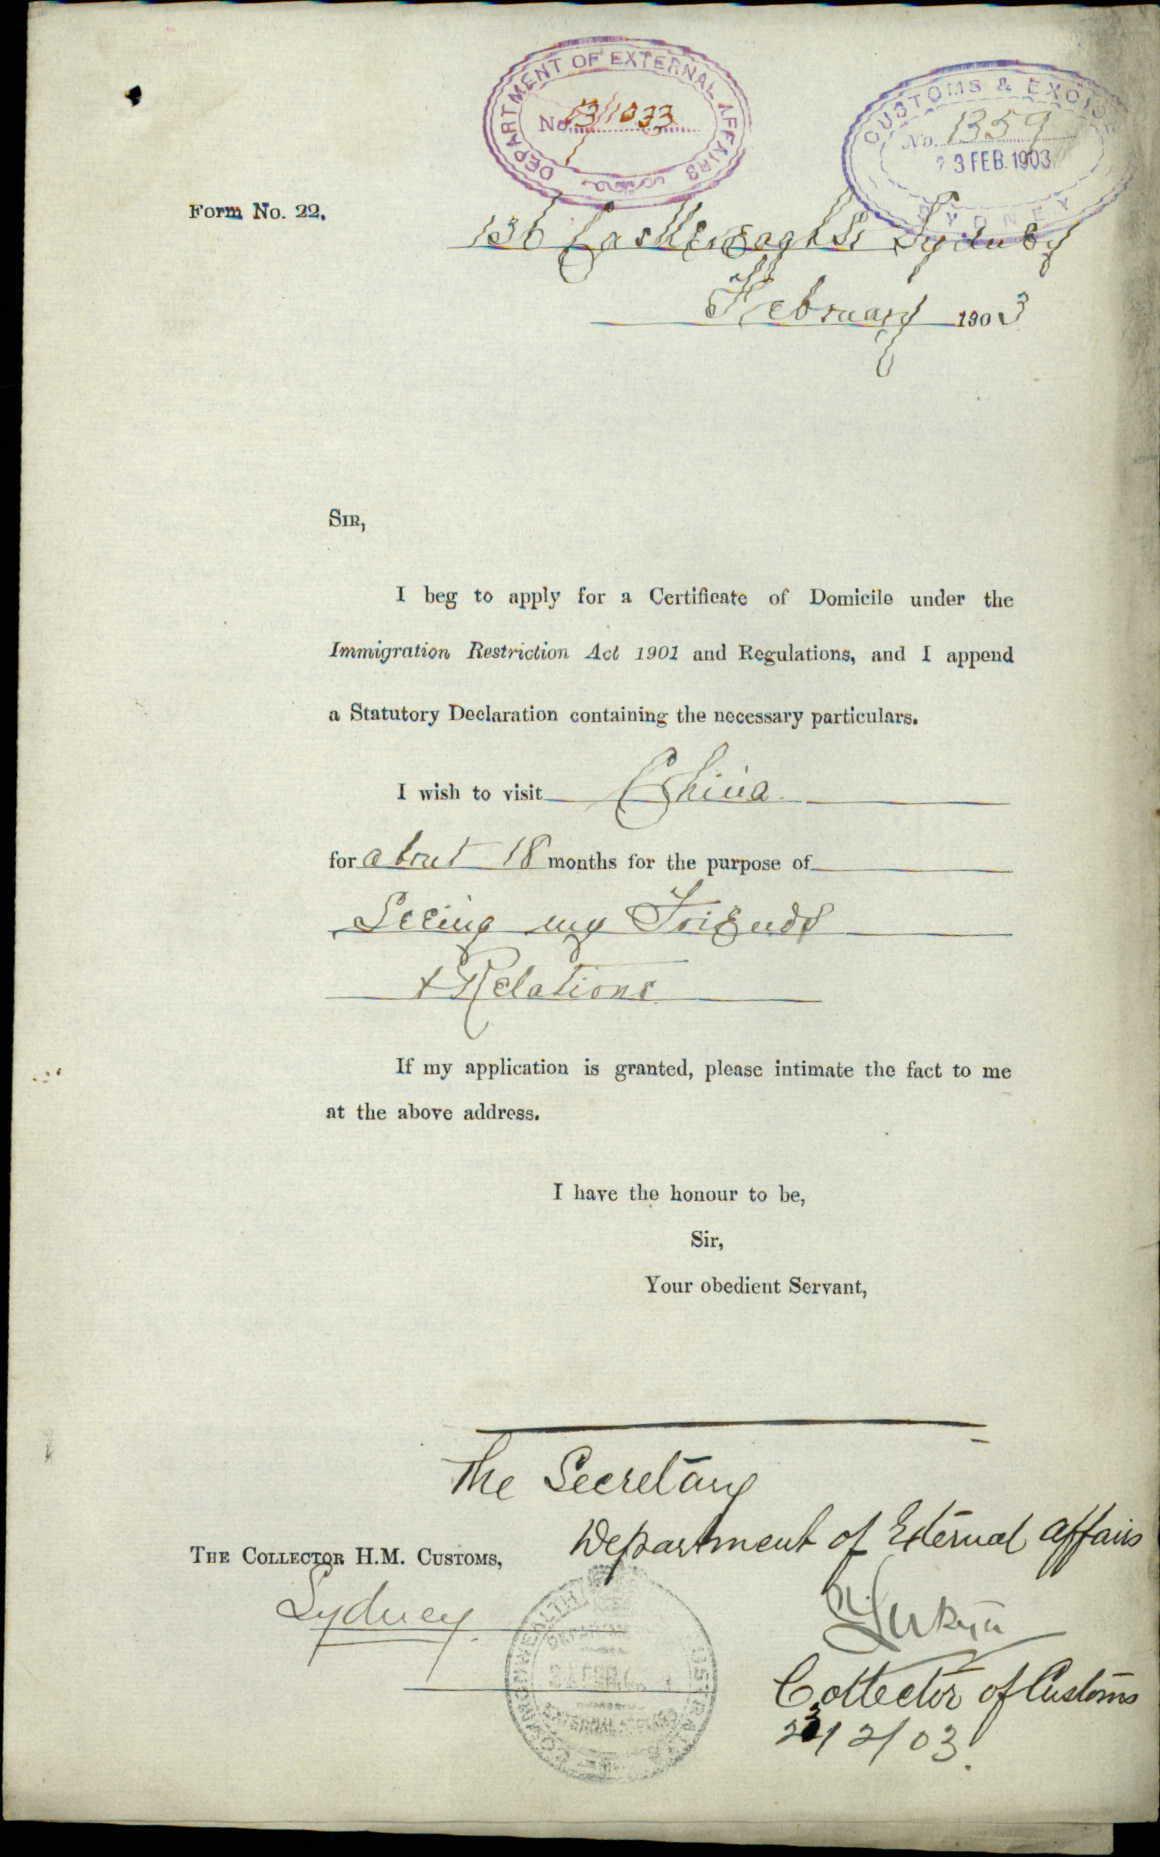 DEPARTMENT OF EXTERNAL AFFAIRS
No. 3/1033
CUSTOMS & EXCISE
No. 1359
23 FEB. 1903
SYDNEY
Form No. 22.
136 Castlereagh St Sydney
February 1903
SIR,
I beg to apply for a Certificate of Domicile under the
Immigration Restriction Act 1901 and Regulations, and I append
a Statutory Declaration containing the necessary particulars.
I wish to visit China
for about 18 months for the purpose of
Seeing my Friends
& Relations
If my application is granted, please intimate the fact to me
at the above address.
I have the honour to be,
Sir,
Your obedient Servant,
The Secretary
Department of External Affairs
THE COLLECTOR H.M. CUSTOMS,
Sydney
COMMONWEALTH AUSTRALIA
EXTERNAL AFFAIRS
Collector of Customs
23/2/03.